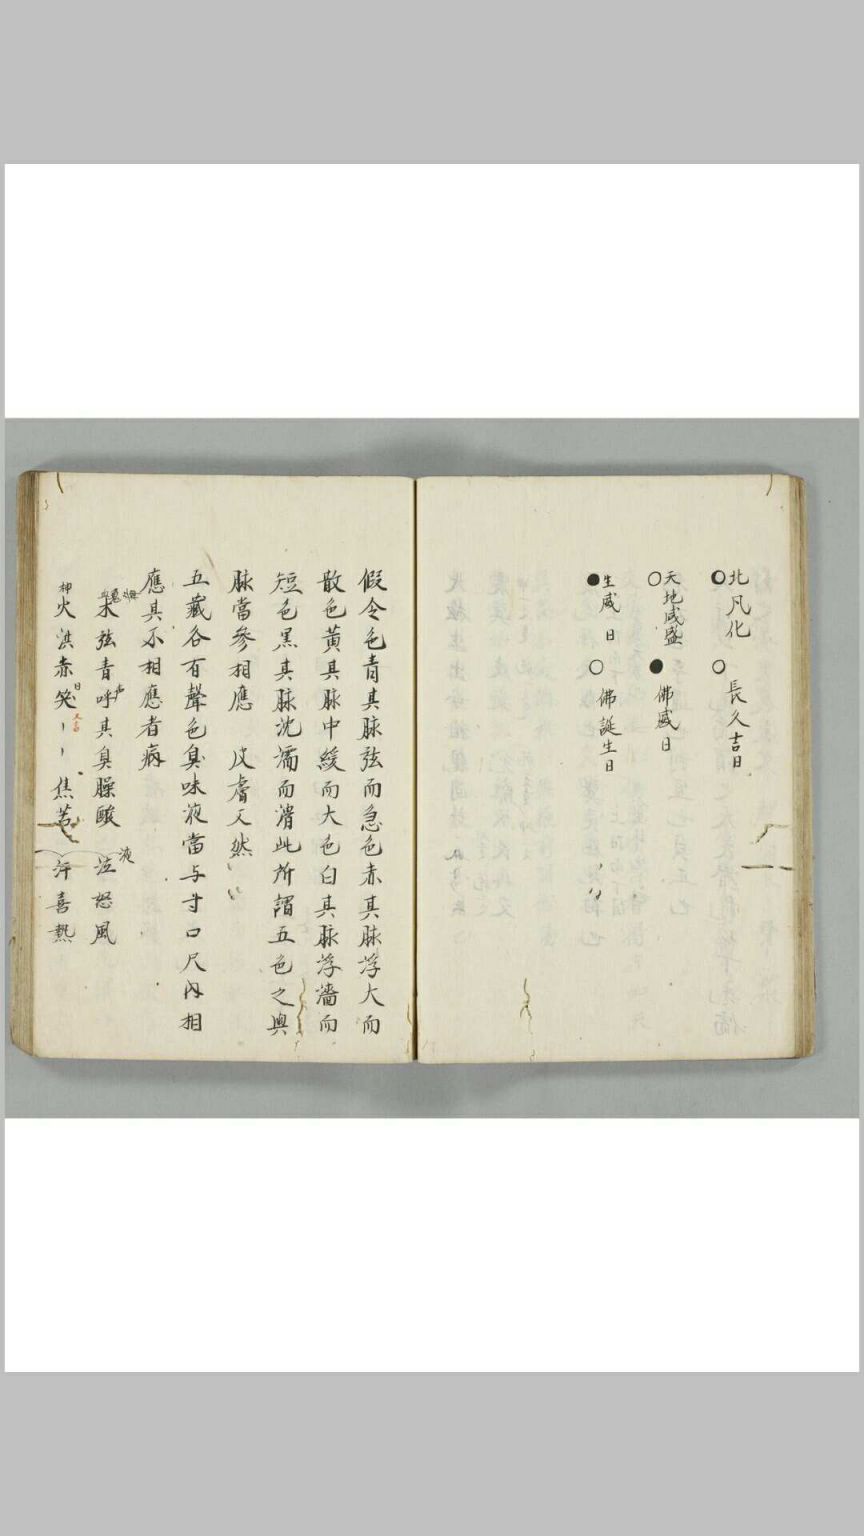 北凡化
長久吉日
天地咸盛
佛咸日
生咸日
佛誕生日
假令色青其脉弦而急色赤其脉浮大而
散色黄其脉中緩而大色白其脉浮濇而
短色黒其脉沈濡而滑此所謂五色之與
脉當參相應 皮膚又然
五藏各有聲色臭味液當与寸口尺内相
應其不相應者病
木弦青呼其臭臊酸 泣怒風
液
火洪赤笑〻〻焦苦 汗喜熱